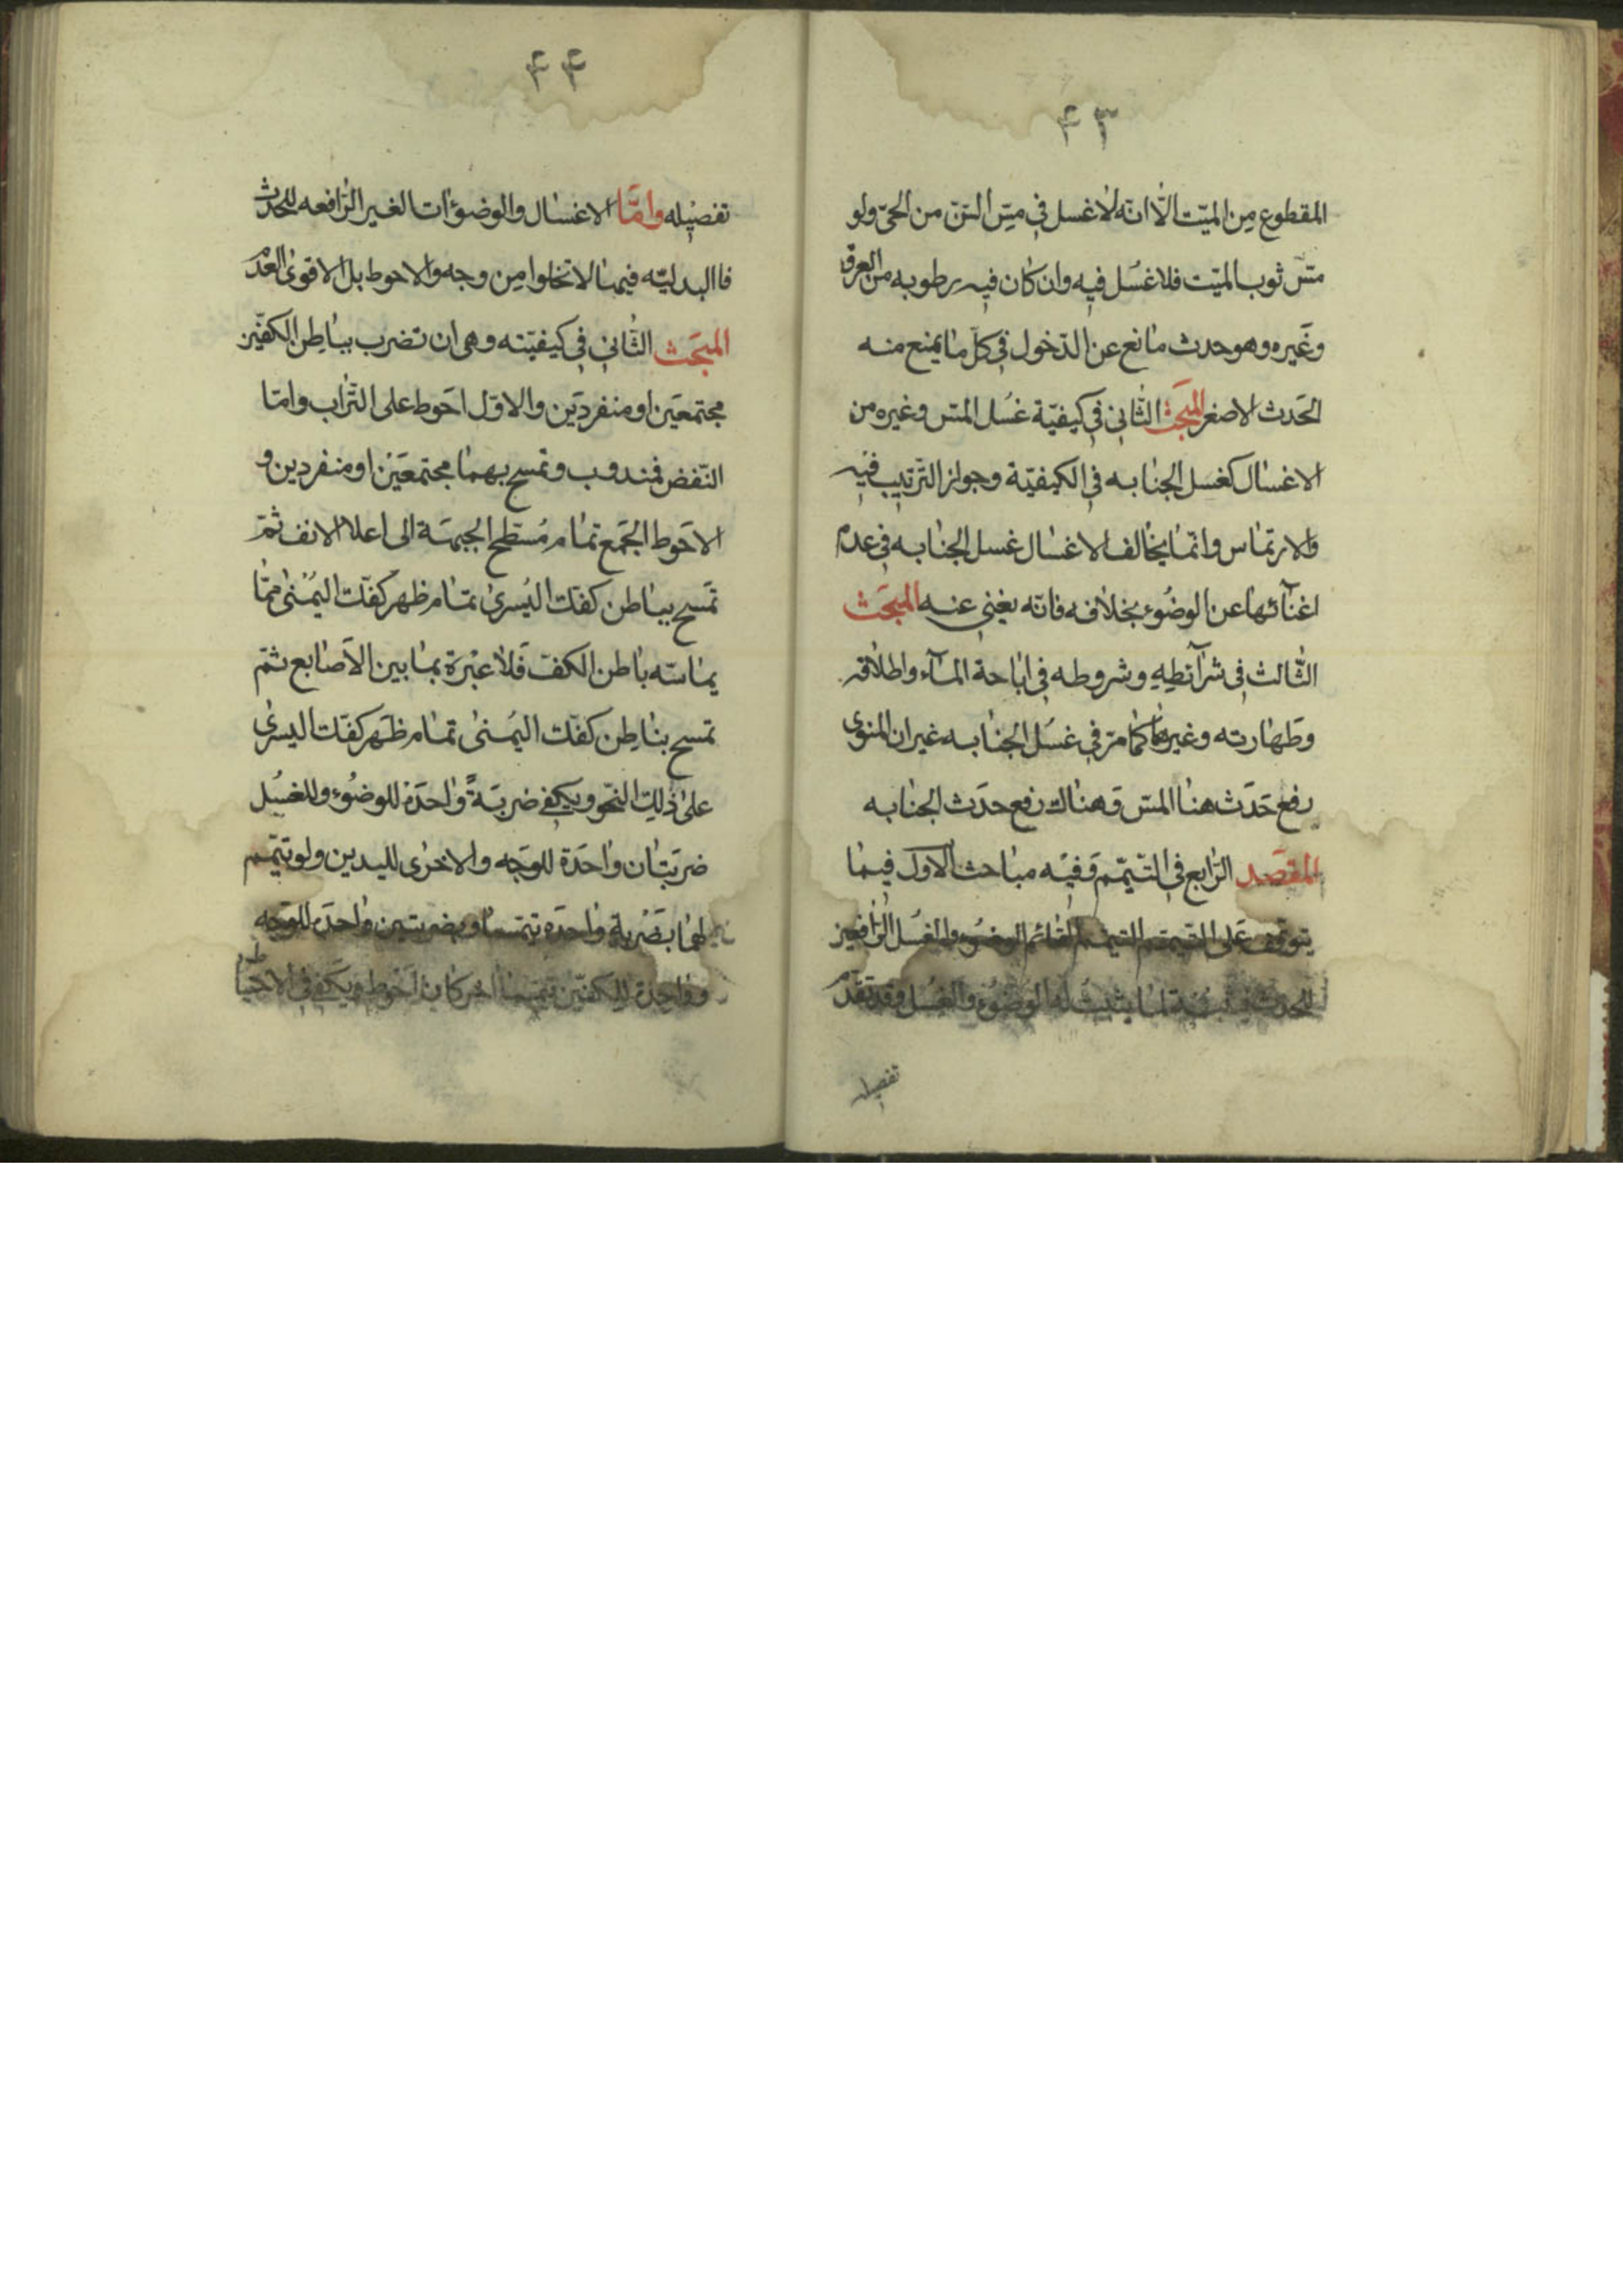 ٤٣
المقطوع مِن الميّت الّا انّه لا غسل في مسّ السّنّ من الحيّ ولو
مسّ ثوب الميّت فلا غُسل فيه وان كان فيه رطوبه من العرق
وغَيره وهو حدث مانع عن الدّخول في كلّ ما يمنع منه
الحَدث الاصغر المبَحث الثّاني في كيفيّة غسُل المسّ وغيره من
الاغسال كغسل الجنابه في الكيفيّة وجواز التّرتيب فيه
والارتماس وانّما يخالف الاغسال غسل الجنابه في عدم
اغنآئها عن الوضُوء بخلافه فانّه يغني عنه المبحَث
الثّالث في شرآئطِهِ وشروطه في اباحة المآء واطلاقه
وطَهارته وغيرها كما مرّ في غسُل الجنابه غير ان المنوى
رفع حَدَث هنا المسّ وَهناك رفع حدَث الجنابه
المقصَد الرّابع في التّيمّم وَفيْه مباحث الاول فيما
يتوقّف عَلى التّيمّم التيمّم القائم الوضوء والغسُل الرّافعين
للحدث لما يثبت له الوضوُء والغسُل وقد تقدّم
تفصيله
٤٤
تفصيله وامّا الاغسال والوضوءات الغير الرّافعه للحدث
فاالبدليّه فيها لا تخلوا مِن وجه والاحوط بل الاقوىٰ العدم
المبحَث الثّاني في كيفيّته وهى ان تضرب بباطِن الكفّين
مجتمعَين او منفردَين والاوّل احَوط على التّراب وامّا
النّفض فمندوب وتمسح بهما مجتمعَيْن او منفردين و
الاحَوط الجَمع تمام مُسَطّح الجبهَة الى اعلا الانف ثمّ
تمَسح بباطن كفّك اليُسرىٰ تمام ظهر كفّك اليُمْنىٰ ممّا
يماسّه باطن الكفّ فَلا عِبْرَة بما بين الاَصابع ثمّ
تمسح بباطِن كفّك اليُمنىٰ تمام ظهَر كفّك اليسرىٰ
علىٰ ذٰلِك النّحو ويكفى ضربَةً واحدَة للوضُوء وللغسُل
ضربَتان واحَدة للوَجه والاخرٰى لليدين ولو تيَمّم
لهما بضَرْبة واحدَه تيمّما وبضربتين واحدَة للوَجه
وواحِدة للكفّين تيمّما اخر كان احَوط ويكَفى في الاحتياط